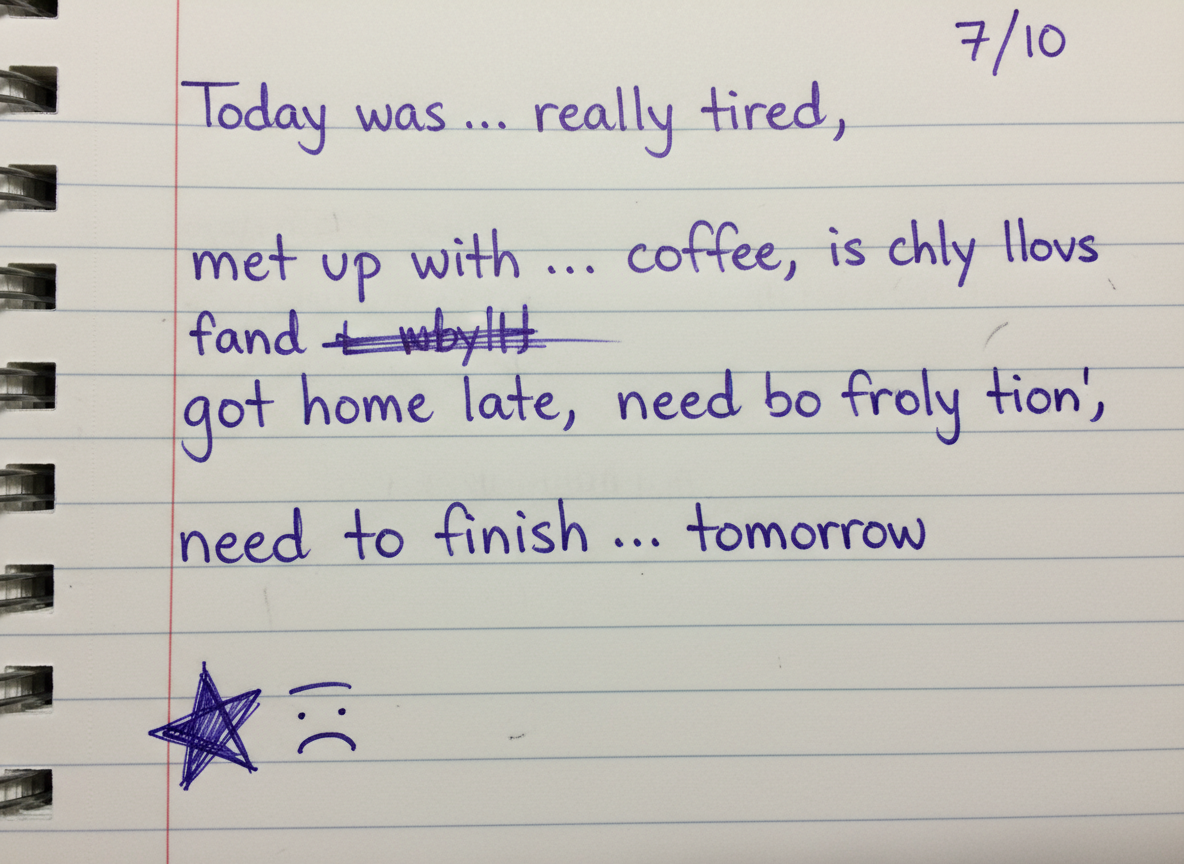 7/10
Today was ... really tired,
met up with ... coffee, is chly llovs
fand
got home late, need bo froly tion',
need to finish ... tomorrow